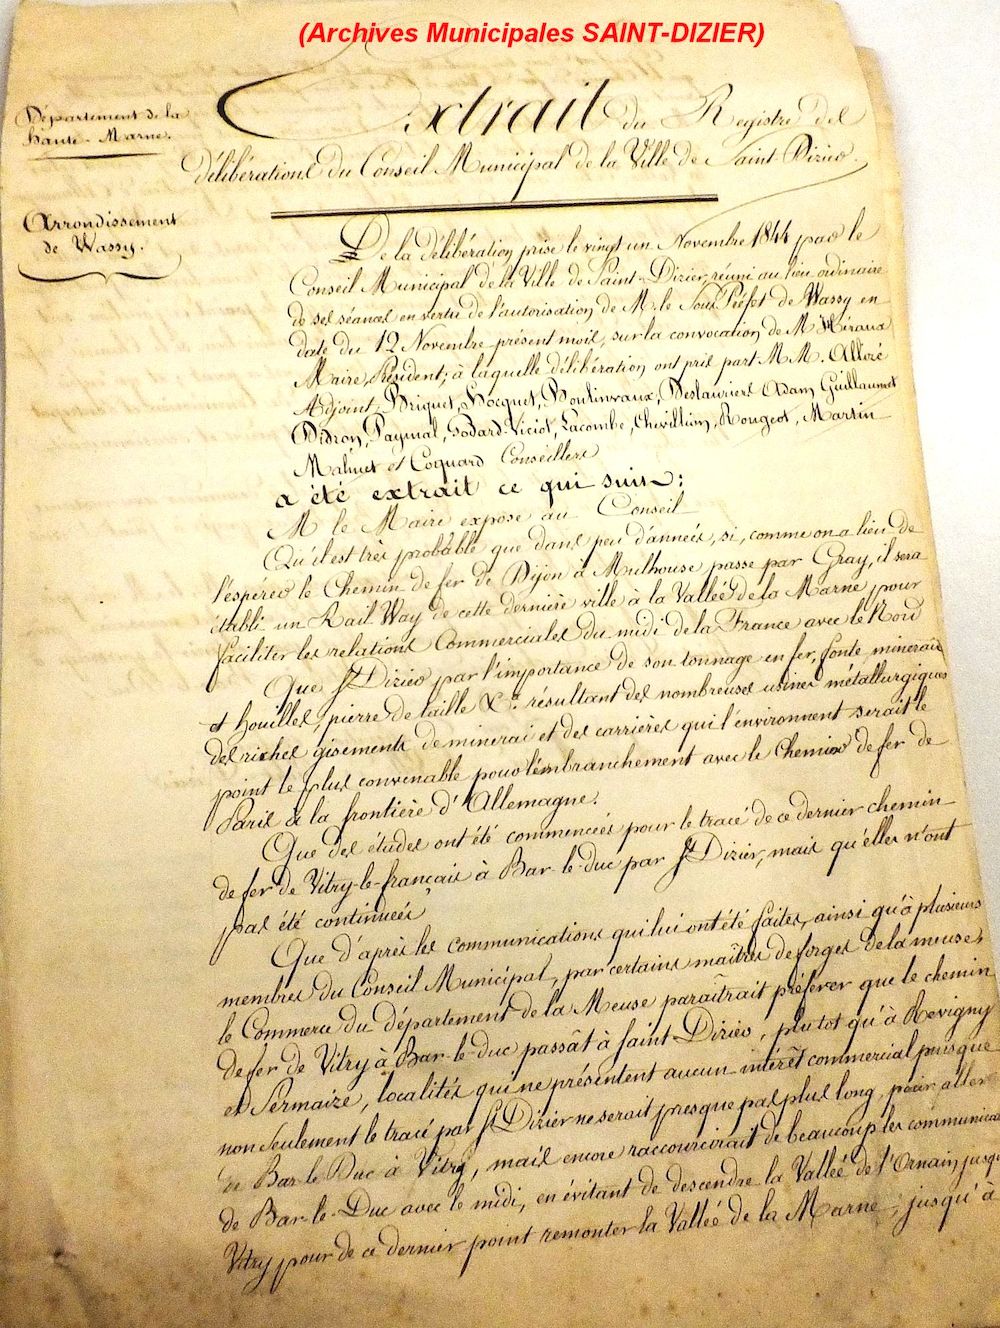 (Archives Municipales SAINT-DIZIER)
Département de la
haute-Marne.
Arrondissement
de Wassy.
Extrait du Registre des
délibérations du Conseil Municipal de la Ville de Saint-Dizier.
De la délibération prise le vingt un Novembre 1844 par le
Conseil Municipal de la Ville de Saint-Dizier, réuni au lieu ordinaire
de ses séances en vertu de l'autorisation de M. le Sous Préfet de Wassy en
date du 12 Novembre présent mois, sur la convocation de M.
Maire, Président; à laquelle délibération ont pris part MM.
Adjoint, Briquet, Hocquet, Deslauriers Adam Guillaumet
Didron, Paymal, Godard-Viciot, Lacombe, Chevillion, Rougeot, Martin
et Coquard Conseillers
a été extrait ce qui suit:
M le Maire expose au Conseil
Qu'il est très probable que dans peu d'années, si, comme on a lieu de
l'espérer le Chemin de fer de Dijon à Mulhouse passe par Gray, il sera
établi un Rail Way de cette dernière ville à la Vallée de la Marne pour
faciliter les relations Commerciales du midi de la France avec le Nord
Que St Dizier par l'importance de son tonnage en fer, fonte, minerais
et houilles, pierre de taille &ca résultant des nombreuses usines métallurgiques
des riches gisements de minerai et des carrières qui l'environnent serait le
point le plus convenable pour l'embranchement avec le Chemin de fer de
Paris à la frontière d'Allemagne.
Que des études ont été commencées pour le tracé de ce dernier chemin
de fer de Vitry-le-français à Bar-le-duc par St Dizier, mais qu'elles n'ont
pas été continuées
Que d'après les communications qui lui ont été faites, ainsi qu'à plusieurs
membres du Conseil Municipal, par certains maîtres de forges de la meuse,
le Commerce du département de la Meuse paraîtrait préférer que le chemin
de fer de Vitry à Bar-le-duc passât à Saint-Dizier, plutot qu'à Revigny
et Sermaize, localités qui ne présentent aucun intérêt commercial puisque
non seulement le tracé par St Dizier ne serait presque pas plus long, pour aller
de Bar-le Duc à Vitry, mais encore raccourcirait de beaucoup les
de Bar-le-Duc avec le midi, en évitant de descendre la Vallée de l'Ornain
Vitry pour de ce dernier point remonter la Vallée de la Marne, jusqu'à